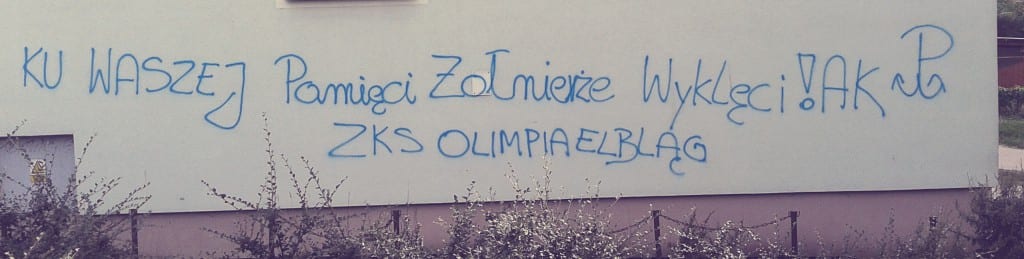 KU WASZEJ Pamięci Żołnierze Wyklęci! AK
ZKS OLIMPIA ELBLĄG